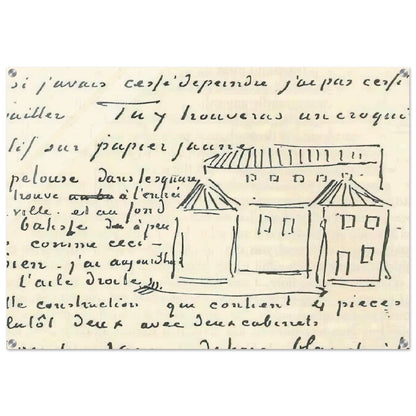 si j'avais cessé de peindre j'ai pas cessé
ailler Tu y trouveras un croqui
tif sur papier jaune
pelouse dans le square
trouve à l'entrée
ville. et au fond
batisse de à peu
s comme ceci –
bien. j'ai aujourdhui
l'aile droite
lle construction qui contient 4 pieces
lutôt deux avec deux cabinets